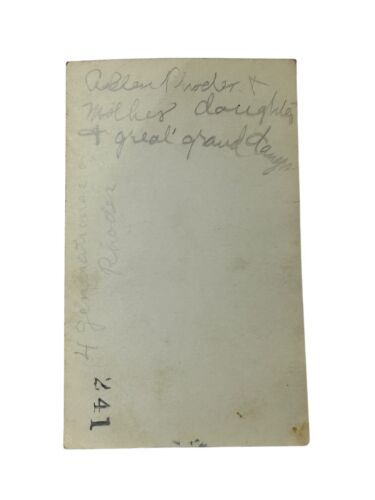 Allen Rhodes +
mother daughter
+ great grand daugh
4 generations of
Rhodes
241